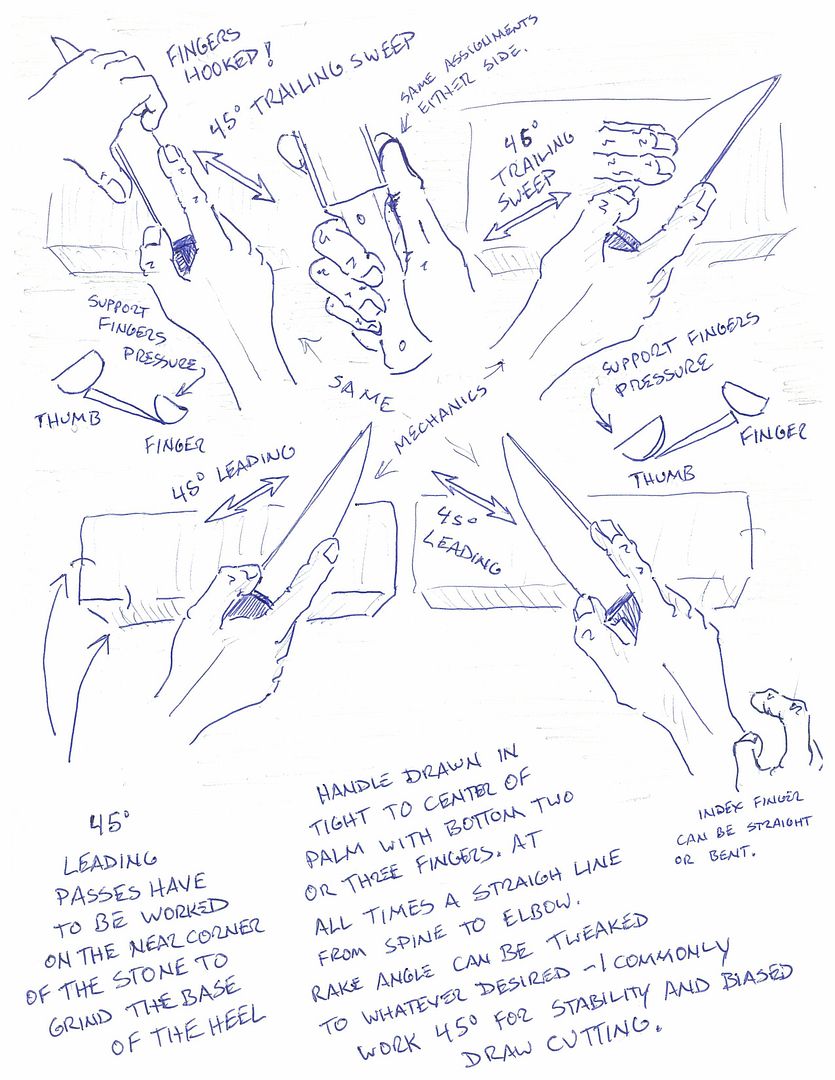 FINGERS
HOOKED!
45° TRAILING SWEEP
SAME ASSIGNMENTS
EITHER SIDE.
45°
TRAILING
SWEEP
SUPPORT
FINGERS
PRESSURE
THUMB
FINGER
SAME
MECHANICS
SUPPORT FINGERS
PRESSURE
THUMB
FINGER
45° LEADING
45°
LEADING
INDEX FINGER
CAN BE STRAIGHT
OR BENT.
45°
LEADING
PASSES HAVE
TO BE WORKED
ON THE NEAR CORNER
OF THE STONE TO
GRIND THE BASE
OF THE HEEL
HANDLE DRAWN IN
TIGHT TO CENTER OF
PALM WITH BOTTOM TWO
OR THREE FINGERS. AT
ALL TIMES A STRAIGH LINE
FROM SPINE TO ELBOW.
RAKE ANGLE CAN BE TWEAKED
TO WHATEVER DESIRED - I COMMONLY
WORK 45° FOR STABILITY AND BIASED
DRAW CUTTING.